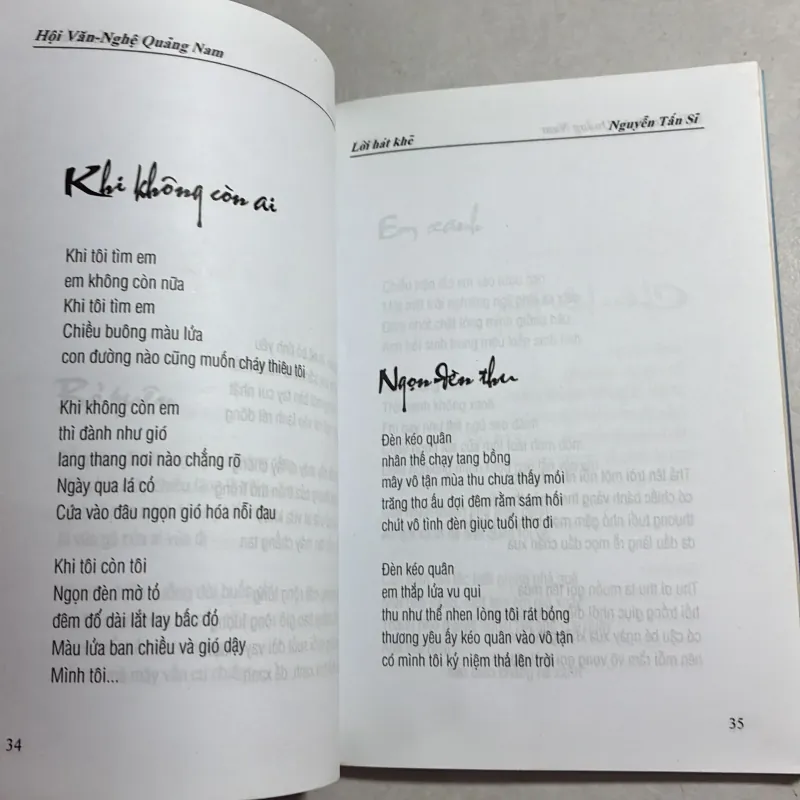 Hội Văn-Nghệ Quảng Nam
Khi không còn ai
Khi tôi tìm em
em không còn nữa
Khi tôi tìm em
Chiều buông màu lửa
con đường nào cũng muốn cháy thiêu tôi
Khi không còn em
thì đành như gió
lang thang nơi nào chẳng rõ
Ngày qua lá cỏ
Cứa vào đâu ngọn gió hóa nỗi đau
Khi tôi còn tôi
Ngọn đèn mờ tỏ
đêm đổ dài lắt lay bấc đỏ
Màu lửa ban chiều và gió dậy
Mình tôi...
34
Lời hát khẽ
Nguyễn Tấn Sĩ
Ngọn đèn thu
Đèn kéo quân
nhân thế chạy tang bồng
mây vô tận mùa thu chưa thấy mỏi
trăng thơ ấu đợi đêm rằm sám hối
chút vô tình đèn giục tuổi thơ đi
Đèn kéo quân
em thắp lửa vu qui
thu như thể nhen lòng tôi rát bỏng
thương yêu ấy kéo quân vào vô tận
có mình tôi ký niệm thả lên trời
35